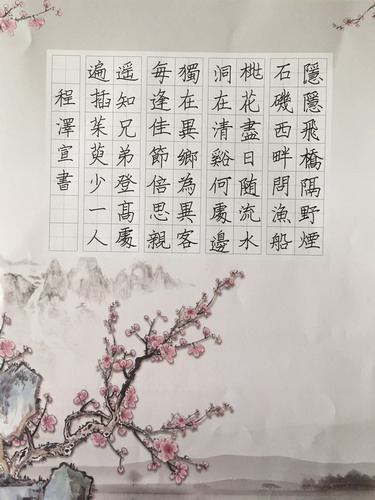 隱隱飛橋隔野煙
石磯西畔問漁船
桃花盡日随流水
洞在清谿何處邊
獨在異鄉為異客
每逢佳節倍思親
遥知兄弟登髙處
遍插茱萸少一人
程澤宣書